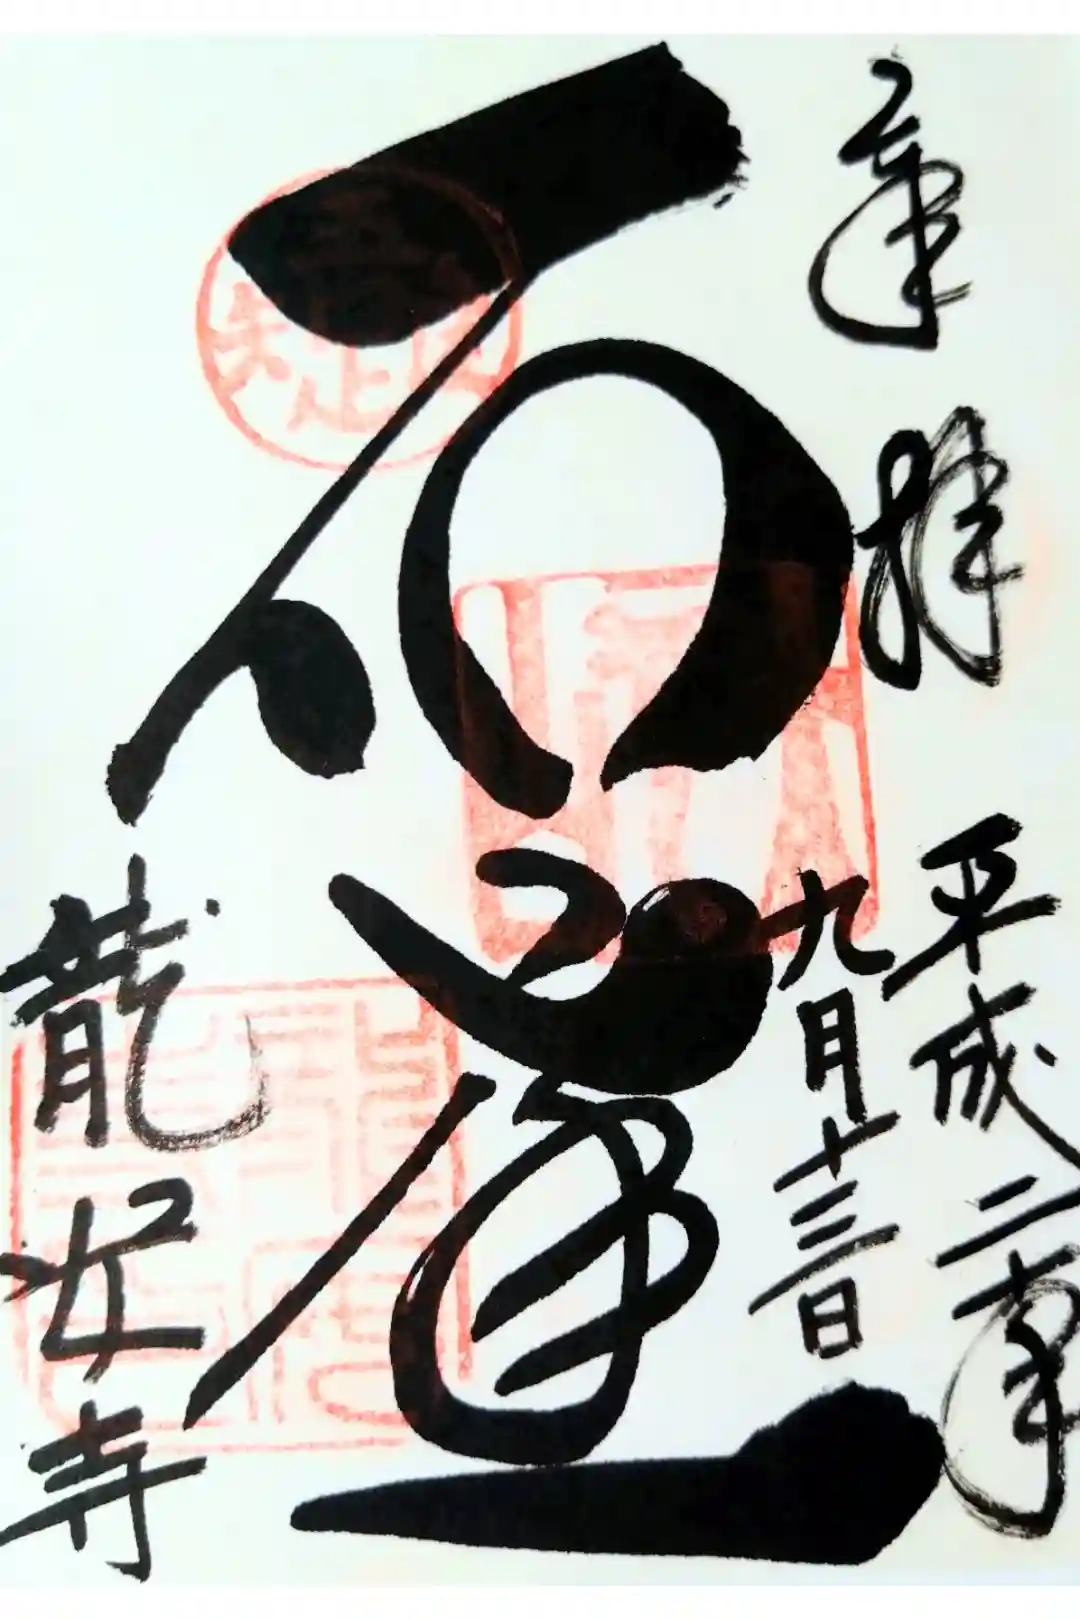 奉拝
平成二年
九月廿三日
石庭
龍安寺